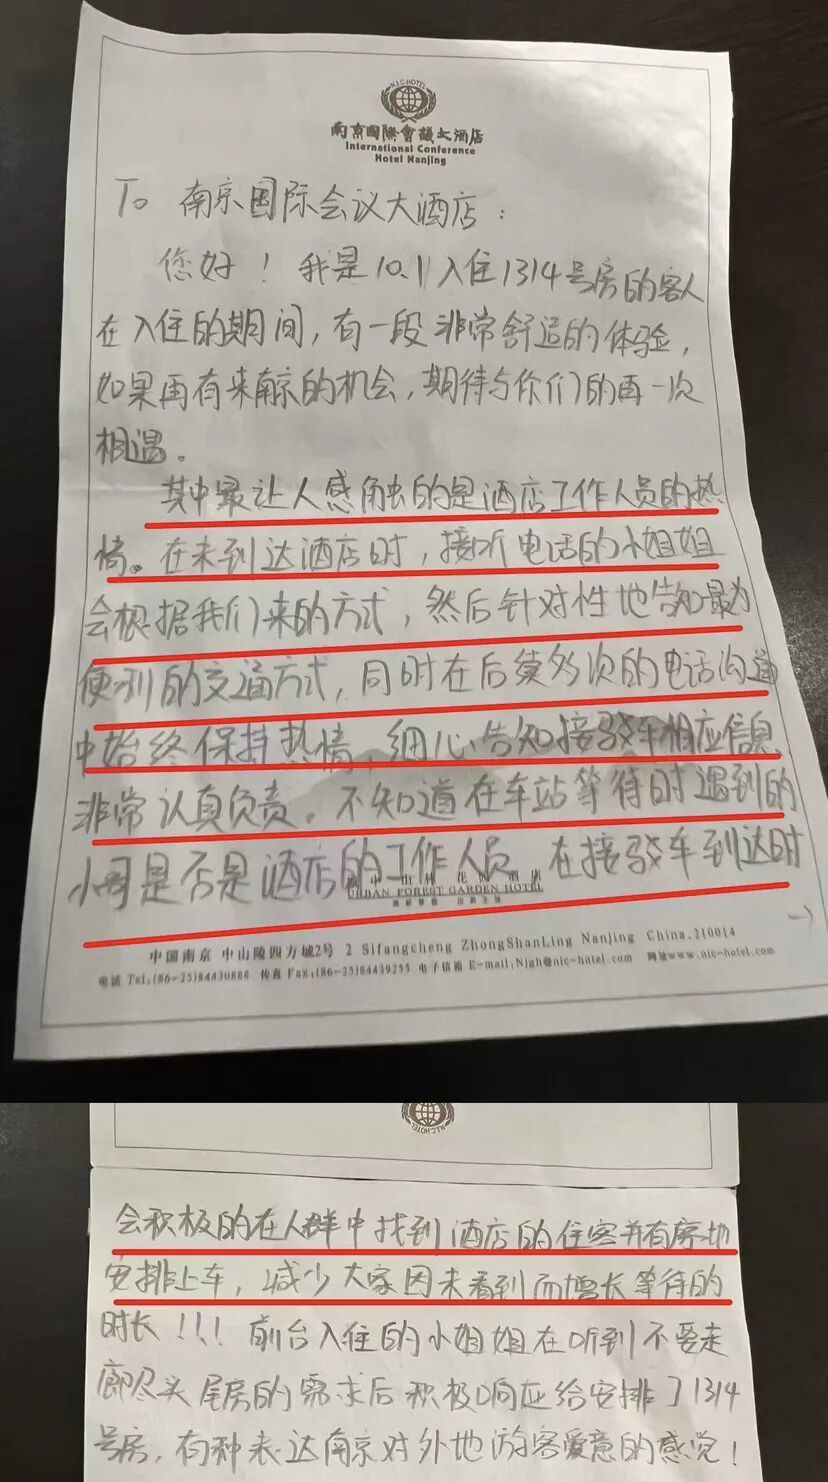 N.I.C.HOTEL
南京國際會議大酒店
International Conference
Hotel Nanjing
To 南京国际会议大酒店：
您好！我是10.1入住1314号房的客人
在入住的期间，有一段非常舒适的体验，
如果再有来南京的机会，期待与你们的再一次
相遇。
其中最让人感触的是酒店工作人员的热
情。在未到达酒店时，接听电话的小姐姐
会根据我们来的方式，然后针对性地告知最为
便利的交通方式，同时在后续多次的电话沟通
中始终保持热情、细心告知接驳车相应信息
非常认真负责。不知道在车站等待时遇到的
小哥是否是酒店的工作人员 在接驳车到达时
URBAN FOREST GARDEN HOTEL
→
中国南京 中山陵四方城2号 2 Sifangcheng ZhongShanLing Nanjing China.210014
电话 Tel:(86-25)84430888 传真 Fax:(86-25)84439255 电子信箱 E-mail:Nigh@nic-hotel.com 网址www.nic-hotel.com
N.I.C.HOTEL
会积极的在人群中找到酒店的住客并有序地
安排上车，减少大家因未看到而增长等待的
时长！！！前台入住的小姐姐在听到不要走
廊尽头尾房的需求后积极响应给安排了1314
号房，有种表达南京对外地游客爱意的感觉！